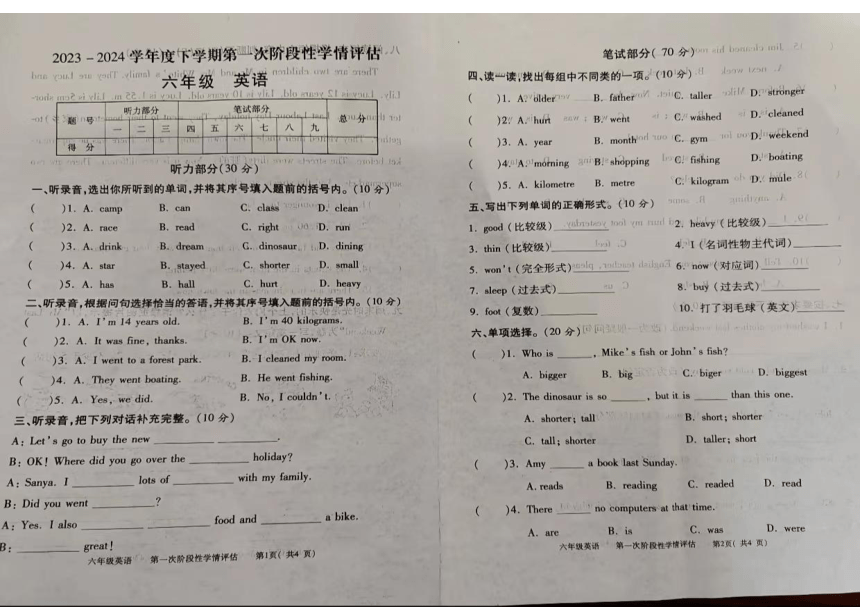 2023-2024学年度下学期第一次阶段性学情评估
六年级 英语
题 号 听力部分 笔试部分 总 分
一 二 三 四 五 六 七 八 九
得 分
听力部分(30分)
一、听录音,选出你所听到的单词,并将其序号填入题前的括号内。(10分)
( )1. A. camp B. can C. class D. clean
( )2. A. race B. read C. right D. run
( )3. A. drink B. dream C. dinosaur D. dining
( )4. A. star B. stayed C. shorter D. small
( )5. A. has B. hall C. hurt D. heavy
二、听录音,根据问句选择恰当的答语,并将其序号填入题前的括号内。(10分)
( )1. A. I'm 14 years old. B. I'm 40 kilograms.
( )2. A. It was fine, thanks. B. I'm OK now.
( )3. A. I went to a forest park. B. I cleaned my room.
( )4. A. They went boating. B. He went fishing.
( )5. A. Yes, we did. B. No, I couldn't.
三、听录音,把下列对话补充完整。(10分)
A: Let's go to buy the new ______ ______.
B: OK! Where did you go over the ______ holiday?
A: Sanya. I ______ lots of ______ with my family.
B: Did you went ______?
A: Yes. I also ______ ______ food and ______ a bike.
B: ______ great!
六年级英语 第一次阶段性学情评估 第1页( 共4 页)
笔试部分( 70 分)
四、读一读,找出每组中不同类的一项。(10分)
( )1. A. older B. father C. taller D. stronger
( )2. A. hurt B. went C. washed D. cleaned
( )3. A. year B. month C. gym D. weekend
( )4. A. morning B. shopping C. fishing D. boating
( )5. A. kilometre B. metre C. kilogram D. mule
五、写出下列单词的正确形式。(10分)
1. good(比较级)______ 2. heavy(比较级)______
3. thin(比较级)______ 4. I(名词性物主代词)______
5. won't(完全形式)______ 6. now(对应词)______
7. sleep(过去式)______ 8. buy(过去式)______
9. foot(复数)______ 10. 打了羽毛球(英文)______
六、单项选择。(20分)
( )1. Who is ______, Mike's fish or John's fish?
A. bigger B. big C. biger D. biggest
( )2. The dinosaur is so ______, but it is ______ than this one.
A. shorter; tall B. short; shorter
C. tall; shorter D. taller; short
( )3. Amy ______ a book last Sunday.
A. reads B. reading C. readed D. read
( )4. There ______ no computers at that time.
A. are B. is C. was D. were
六年级英语 第一次阶段性学情评估 第2页( 共4 页)